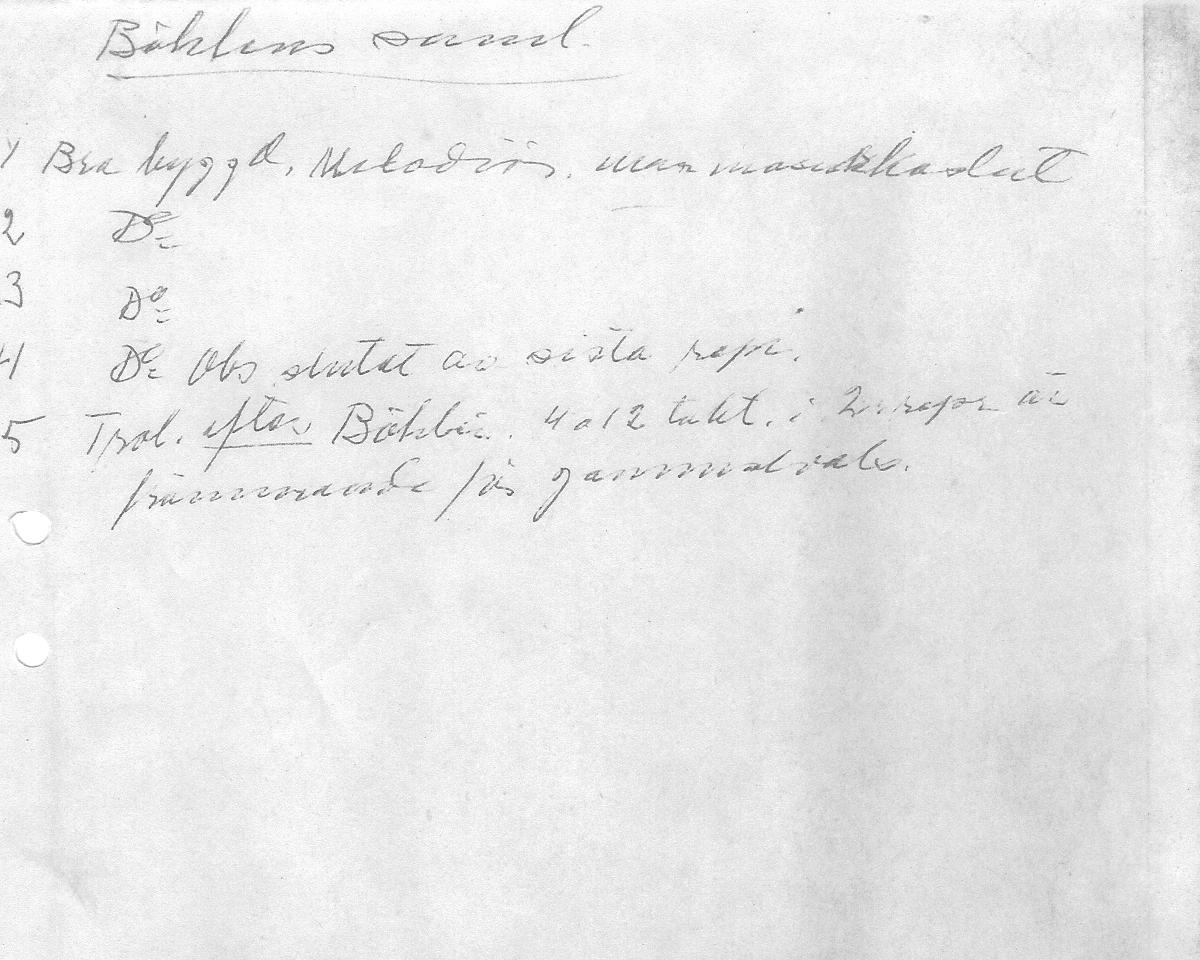 Böhlens saml.
1 Bra byggd. Melodiös. men masurkkaslut
2 Do
3 Do
4 Do Obs slutet av sista repr.
5 Trol. efter Böhlin. 4 a 12 takt. i 2 repr är
främmande för gammelvals.